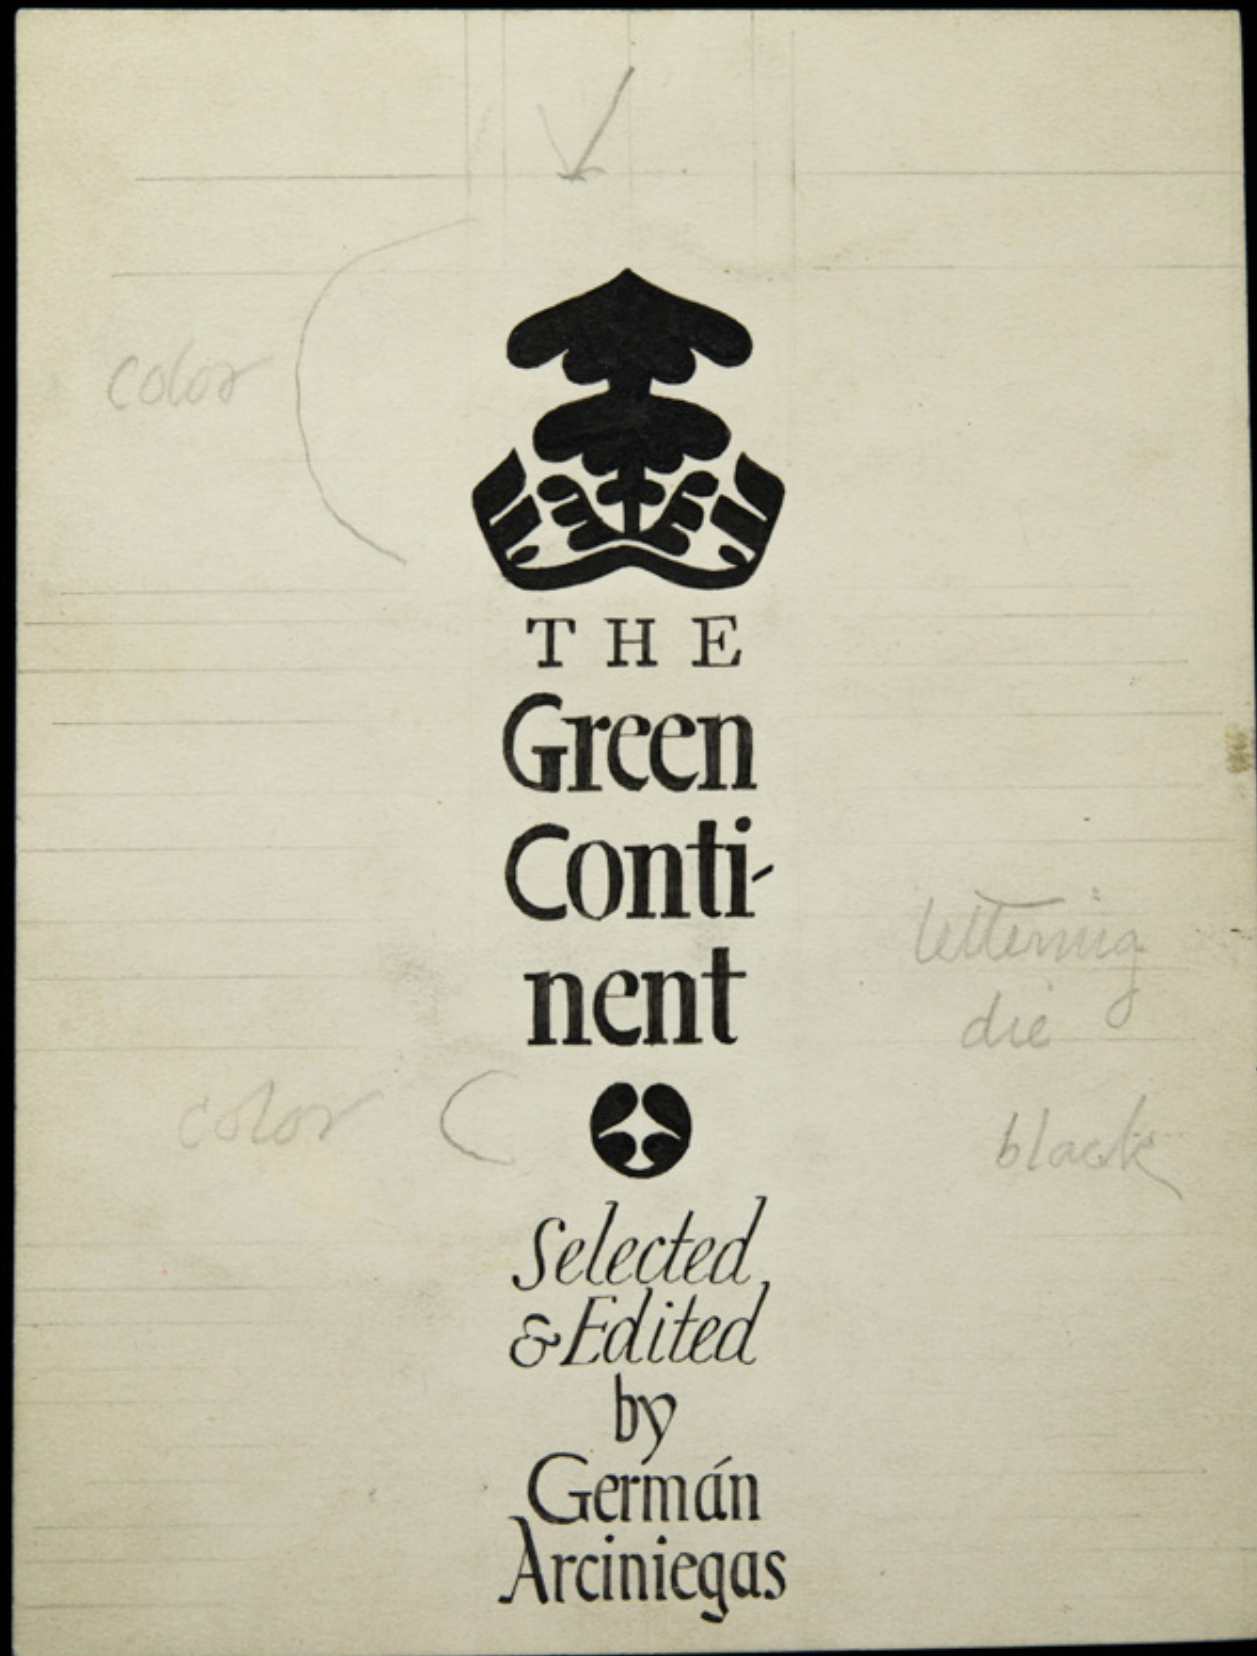 color
THE
Green
Conti-
nent
lettering
die
black
color
Selected
& Edited
by
Germán
Arciniegas